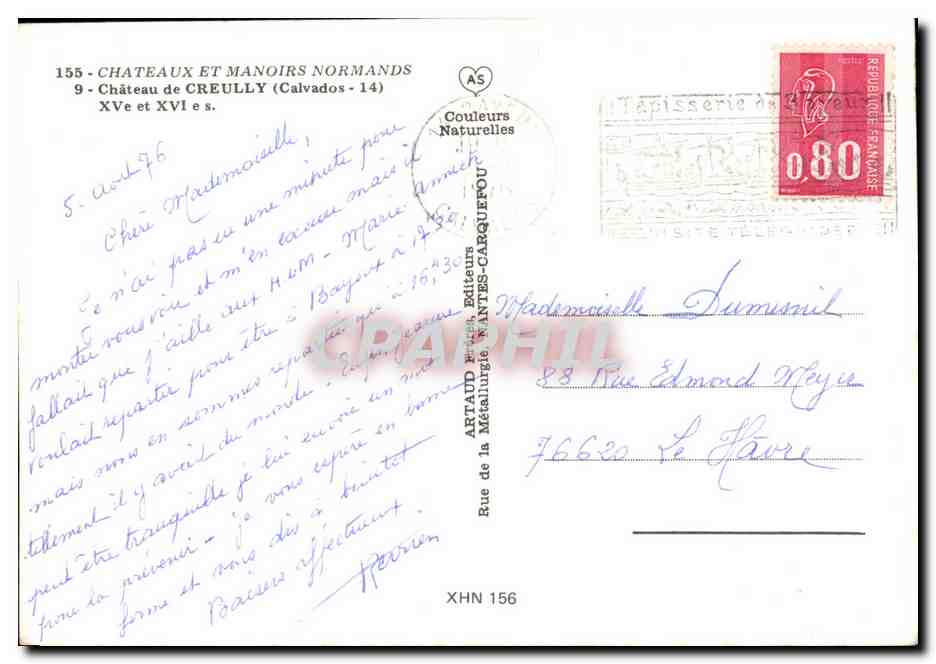 155 - CHATEAUX ET MANOIRS NORMANDS
9 - Château de CREULLY (Calvados - 14)
XVe et XVI e s.
AS
Couleurs
Naturelles
5. août 76
Chère Mademoiselle,
Je n'ai pas eu une minute pour
monter vous voir et m'en excuse mais il
fallait que j'aille aux H.L.M - Marie Annick
voulait repartir pour être à Bayeux à 17h50
mais nous en sommes reparties qu'à 16h30
tellement il y avait du monde.
peut être tranquille je lui envoie un
pour la prévenir - je vous espère en bonne
forme et vous dis à bientôt
Baisers affectueux.
ARTAUD Frères, Editeurs
Rue de la Métallurgie, NANTES-CARQUEFOU
XHN 156
REPUBLIQUE FRANÇAISE
POSTES
0,80
Tapisserie de
VISITE TELEGUIDEE
Mademoiselle Dumesnil
88 Rue Edmond Meyer
76620 Le Hâvre
CPAPHIL